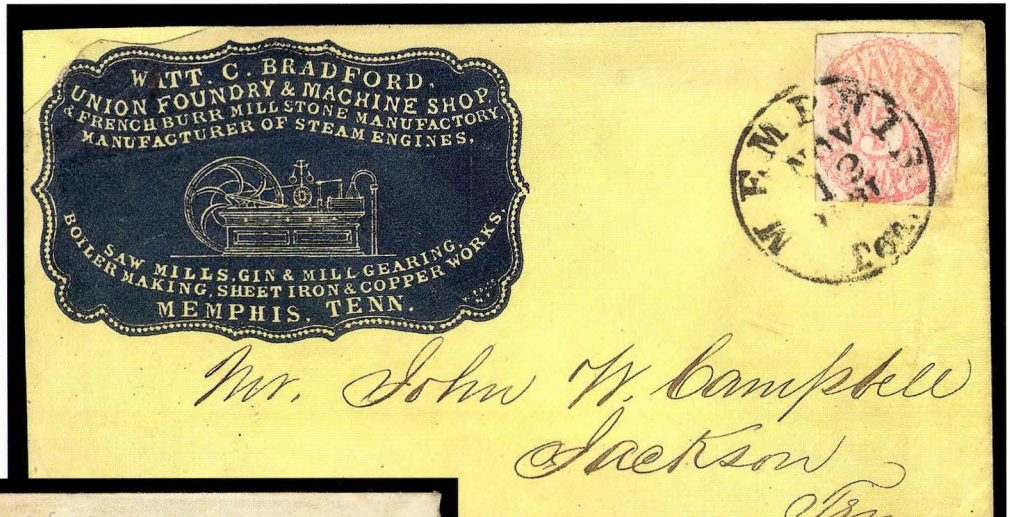 WATT. C. BRADFORD,
UNION FOUNDRY & MACHINE SHOP,
& FRENCH BURR MILL STONE MANUFACTORY,
MANUFACTURER OF STEAM ENGINES,
SAW MILLS, GIN & MILL GEARING,
BOILER MAKING, SHEET IRON & COPPER WORKS
MEMPHIS, TENN.
MEMPHIS
NOV
5
Mr. John W. Campbell
Jackson